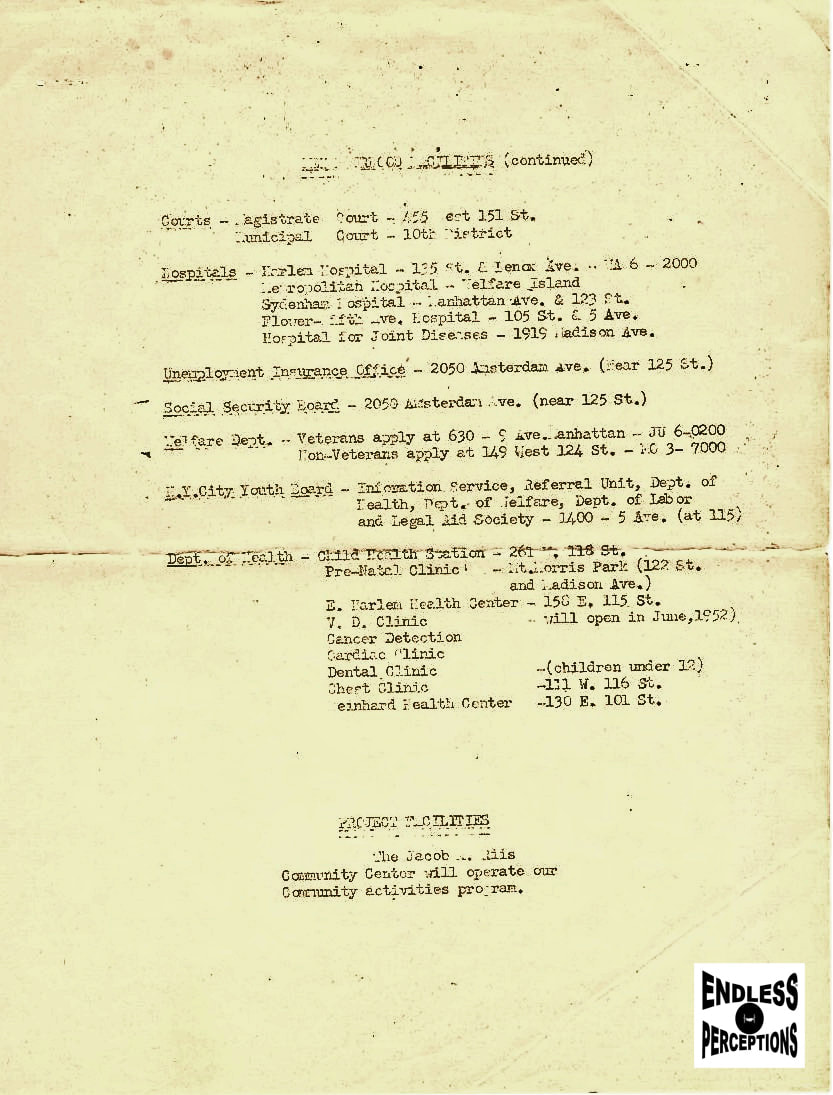 FACILITIES (continued)
Courts - Magistrate Court - 455 West 151 St.
Municipal Court - 10th District
Hospitals - Harlem Hospital - 135 St. & Lenox Ave. - 6 - 2000
Metropolitan Hospital - Welfare Island
Sydenham Hospital - Manhattan Ave. & 123 St.
Flower- Fifth Ave. Hospital - 105 St. & 5 Ave.
Hospital for Joint Diseases - 1919 Madison Ave.
Unemployment Insurance Office - 2050 Amsterdam Ave. (Near 125 St.)
Social Security Board - 2050 Amsterdam Ave. (near 125 St.)
Welfare Dept. - Veterans apply at 630 - 9 Ave. Manhattan - JU 6-0200
Non-Veterans apply at 149 West 124 St. - MO 3- 7000
N.Y.City Youth Board - Infomation Service, Referral Unit, Dept. of
Health, Dept. of Welfare, Dept. of Labor
and Legal Aid Society - 1400 - 5 Ave. (at 115)
Dept. of Health - Child Health Station - 261 W. 118 St.
Pre-Natal Clinic - Mt.Morris Park (122 St.
and Madison Ave.)
E. Harlem Health Center - 158 E. 115 St.
V. D. Clinic - will open in June,1952)
Cancer Detection
Cardiac Clinic
Dental Clinic -(children under 12)
Chest Clinic -111 W. 116 St.
Health Center -130 E. 101 St.
PROJECT FACILITIES
The Jacob A. Riis
Community Center will operate our
Community activities program.
ENDLESS
PERCEPTIONS